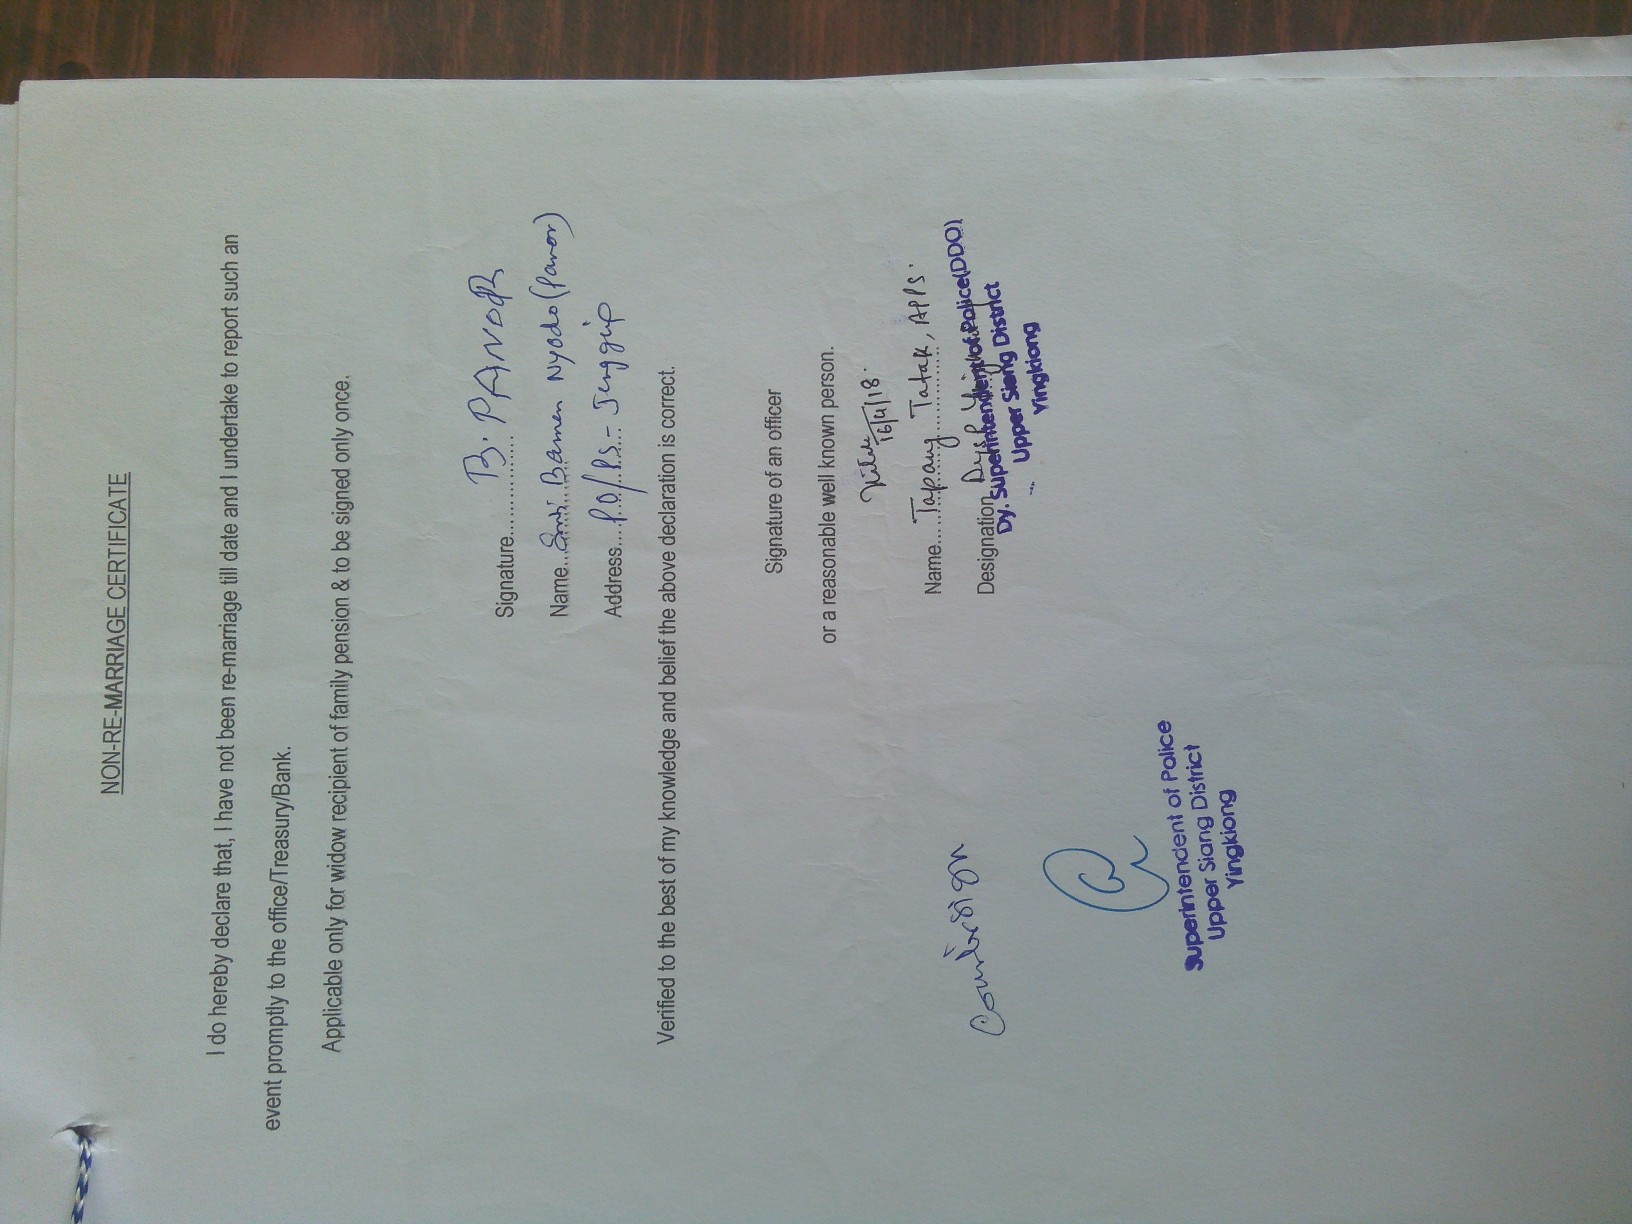 NON-RE-MARRIAGE CERTIFICATE
I do hereby declare that, I have not been re-marriage till date and I undertake to report such an
event promptly to the office/Treasury/Bank.
Applicable only for widow recipient of family pension & to be signed only once.
Signature.............. B. PANOR
Name... Smti Bamen Nyodo (Panor)
Address.... P.O/PS - Jenggip
Verified to the best of my knowledge and belief the above declaration is correct.
Signature of an officer
or a reasonable well known person.
16/4/18.
Name... Tapang Tatak, APPS.
Designation DySP
Dy. Superintendent of Police(DDO)
Upper Siang District
Yingkiong
Superintendent of Police
Upper Siang District
Yingkiong